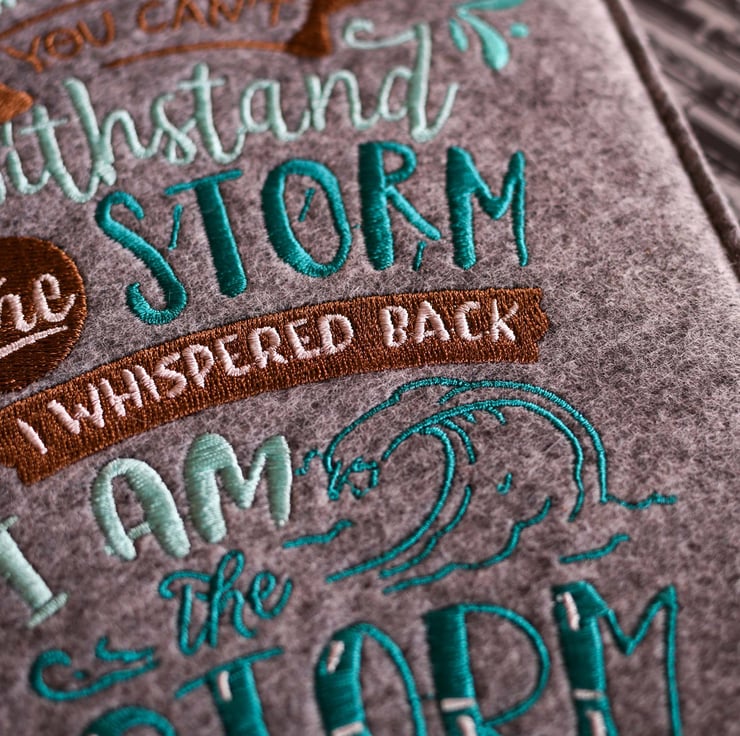 YOU CAN'T
withstand
the STORM
I WHISPERED BACK
I AM
the
STORM